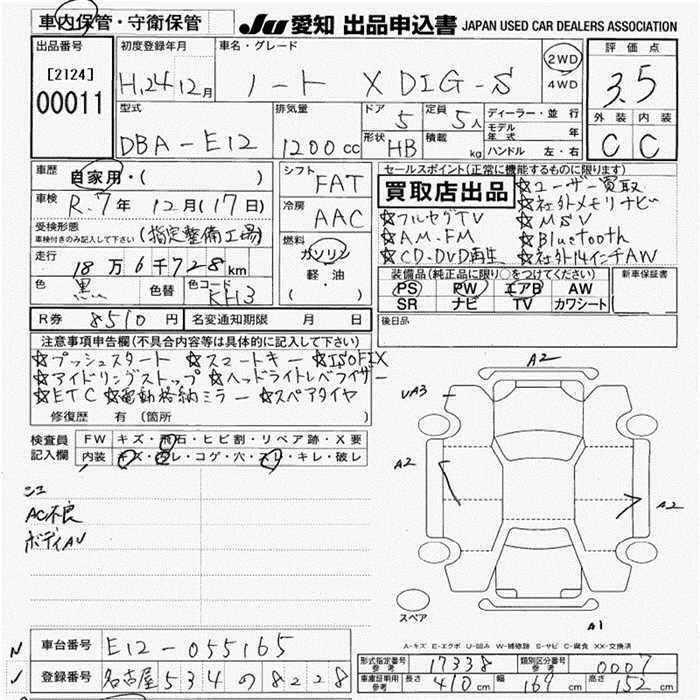 車内保管・守衛保管
JU 愛知 出品申込書 JAPAN USED CAR DEALERS ASSOCIATION
出品番号
[2124]
00011
初度登録年月
H.24 12月
車名・グレード
ノート X DIG-S
2WD
4WD
評価点
3.5
外装 内装
C C
型式
DBA-E12
排気量
1200cc
ドア 5
定員 5人
形状 HB
積載 kg
ディーラー・並行
モデル年式 年
ハンドル 左・右
車歴
自家用・( )
車検
R.7年 12月(17日)
受検形態
車検付きのみ記入して下さい
(指定整備工場)
走行
18万6千728km
色 黒
色替
色コード KH3
シフト
FAT
冷房
AAC
燃料
ガソリン
軽・油
( ・ )
セールスポイント(正常に機能するものに限ります)
買取店出品
☆ユーザー買取
☆社外メモリナビ
☆フルセグTV ☆MSV
☆AM・FM ☆Bluetooth
☆CD・DVD再生 ☆社外14インチAW
装備品(純正品に限り○をつけてください)
PS PW エアB AW
SR ナビ TV カワシート
新車保証書
後日品
R券 8510円
名変通知期限 月 日
注意事項申告欄(不具合内容等は具体的に記入して下さい)
☆プッシュスタート ☆スマートキー ☆ISOFIX
☆アイドリングストップ ☆ヘッドライトレベライザー
☆ETC ☆電動格納ミラー ☆スペアタイヤ
修復歴 有(箇所 )
検査員
記入欄
FW キズ・飛石・ヒビ割・リペア跡・X要
内装 キズ・汚レ・コゲ・穴・スレ・キレ・破レ
AC不良
ボディAU
A2
UA3
A2
A2
A1
スペア
A-キズ E-エクボ U-凹み W-補修跡 S-サビ C-腐食 XX-交換済
車台番号 E12-055165
登録番号 名古屋534の8228
型式指定番号 参考 17338
類別区分番号 参考 0007
車庫証明用 参考 長さ 410cm 幅 169cm 高さ 152cm